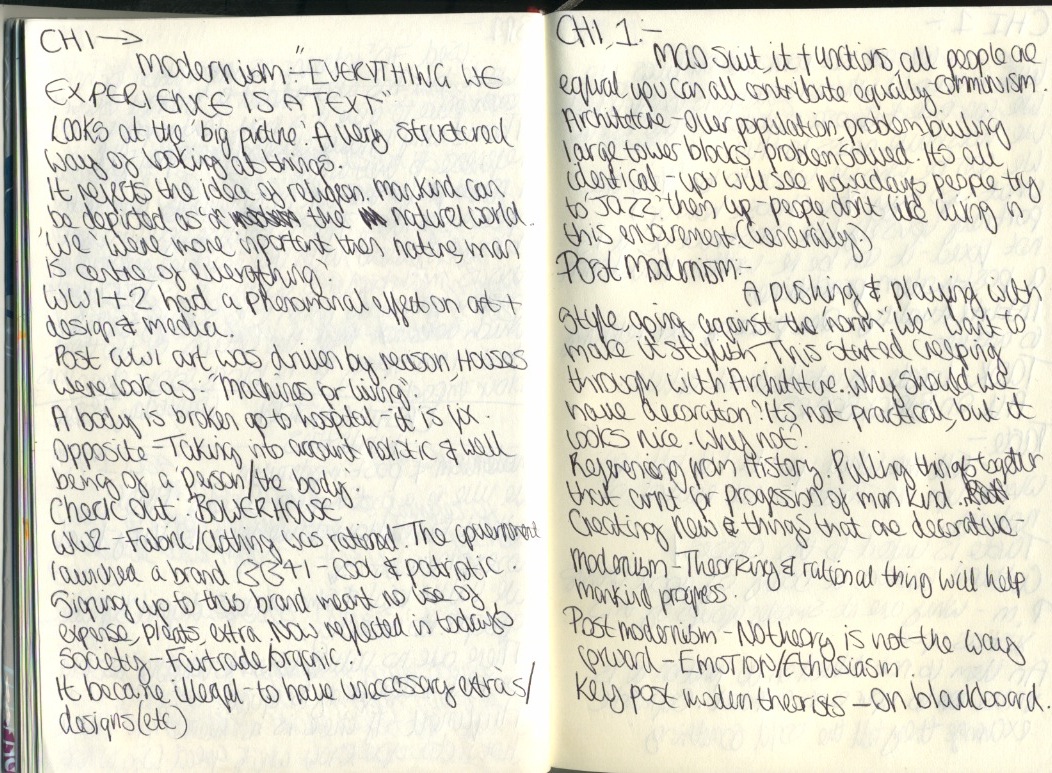 CHI →
Modernism:- "EVERYTHING WE
EXPERIENCE IS A TEXT"
Looks at the 'big picture'. A very structured
way of looking at things.
It rejects the idea of religion. mankind can
be depicted as a the natural world.
'We' were more inportant then nature, man
is centre of everything.
WW1+2 had a phenominal effect on art +
design & media.
Post WW1 art was driven by reason, Houses
were look as "Machines for living".
A body is broken go to hospital - it is fix.
Opposite - Taking into account holistic & well
being of a Person/the body.
Check out: BOWERHOUSE
WW2 - Fabric/clothing was rationed. The government
launched a brand BB41 - Cool & patriotic.
Signing up to this brand meant no use of
expense, pleats, extra. Now reflected in todays
society - Fairtrade/organic.
It became illegal - to have uneccessery extras/
designs (etc)
CHI, 1:-
MAO suit, it functions, all people are
equal, you can all contribute equally communism.
Architeture - Over population, problem builing
large tower blocks - problem solved. It's all
identical - you will see nowadays people try
to 'JAZZ' them up - people don't like living in
this enviroment (Generally.)
Post Modernism:-
A pushing & playing with
style, going against the norm, We want to
make it stylish. This started creeping
through with Architeture. Why should we
have decoration? It's not practical, but it
looks nice. Why not?
Referencing from History. Pulling things together
that arnt for progession of man kind.
Creating New & things that are decorative-
modernism - Theorking & rational thing will help
mankind progress.
Post modernism - No theory is not the way
forward - EMOTION/Ethusiasm
Key post modern theorists - On blackboard.